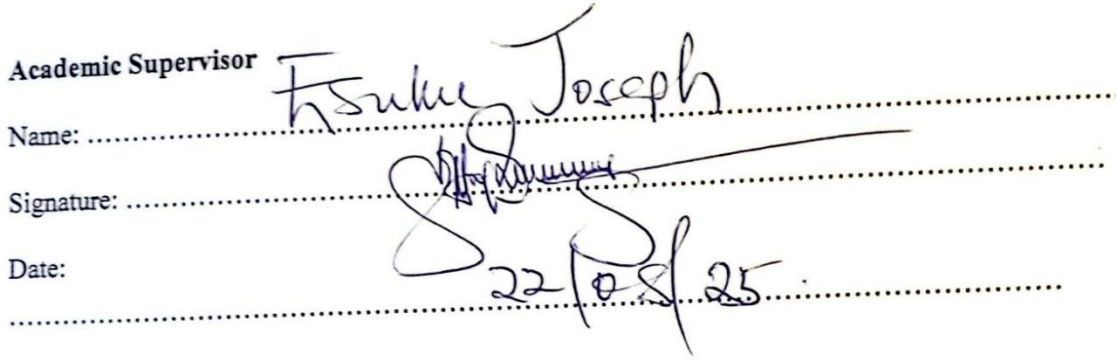 Academic Supervisor
Name: .......... Joseph
Signature: ..........
Date:
22/08/25